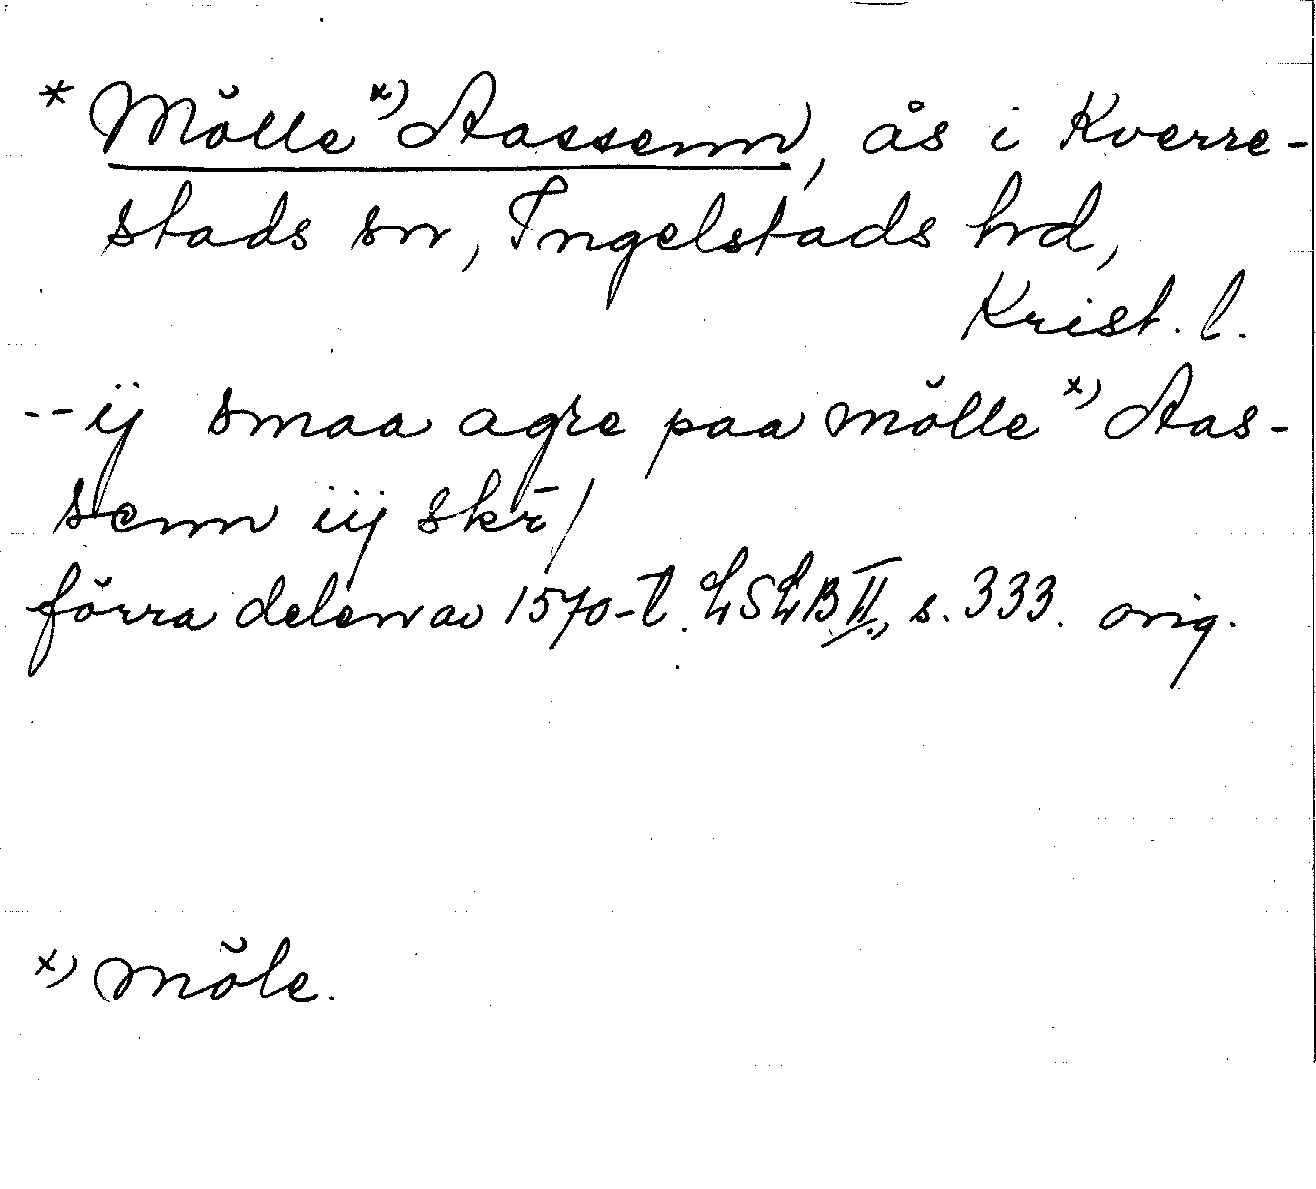 * Mölle ˣ⁾ Aassenn, ås i Kverre-
stads sn, Ingelstads hd,
Krist. l.
--ij smaa agre paa mölle ˣ⁾ Aas-
senn iij skr̄/
förra delen av 1570-t. LSLB II., s. 333. orig.
ˣ⁾ möle.